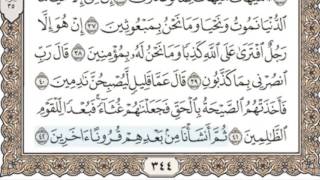 ٱلدُّنْيَا نَمُوتُ وَنَحْيَا وَمَا نَحْنُ بِمَبْعُوثِينَ ٣٧ إِنْ هُوَ إِلَّا
رَجُلٌ ٱفْتَرَىٰ عَلَى ٱللَّهِ كَذِبًا وَمَا نَحْنُ لَهُۥ بِمُؤْمِنِينَ ٣٨ قَالَ رَبِّ
ٱنصُرْنِي بِمَا كَذَّبُونِ ٣٩ قَالَ عَمَّا قَلِيلٍ لَّيُصْبِحُنَّ نَٰدِمِينَ ٤٠
فَأَخَذَتْهُمُ ٱلصَّيْحَةُ بِٱلْحَقِّ فَجَعَلْنَٰهُمْ غُثَآءً فَبُعْدًا لِّلْقَوْمِ
ٱلظَّٰلِمِينَ ٤١ ثُمَّ أَنشَأْنَا مِنۢ بَعْدِهِمْ قُرُونًا ءَاخَرِينَ ٤٢
٣٤٤